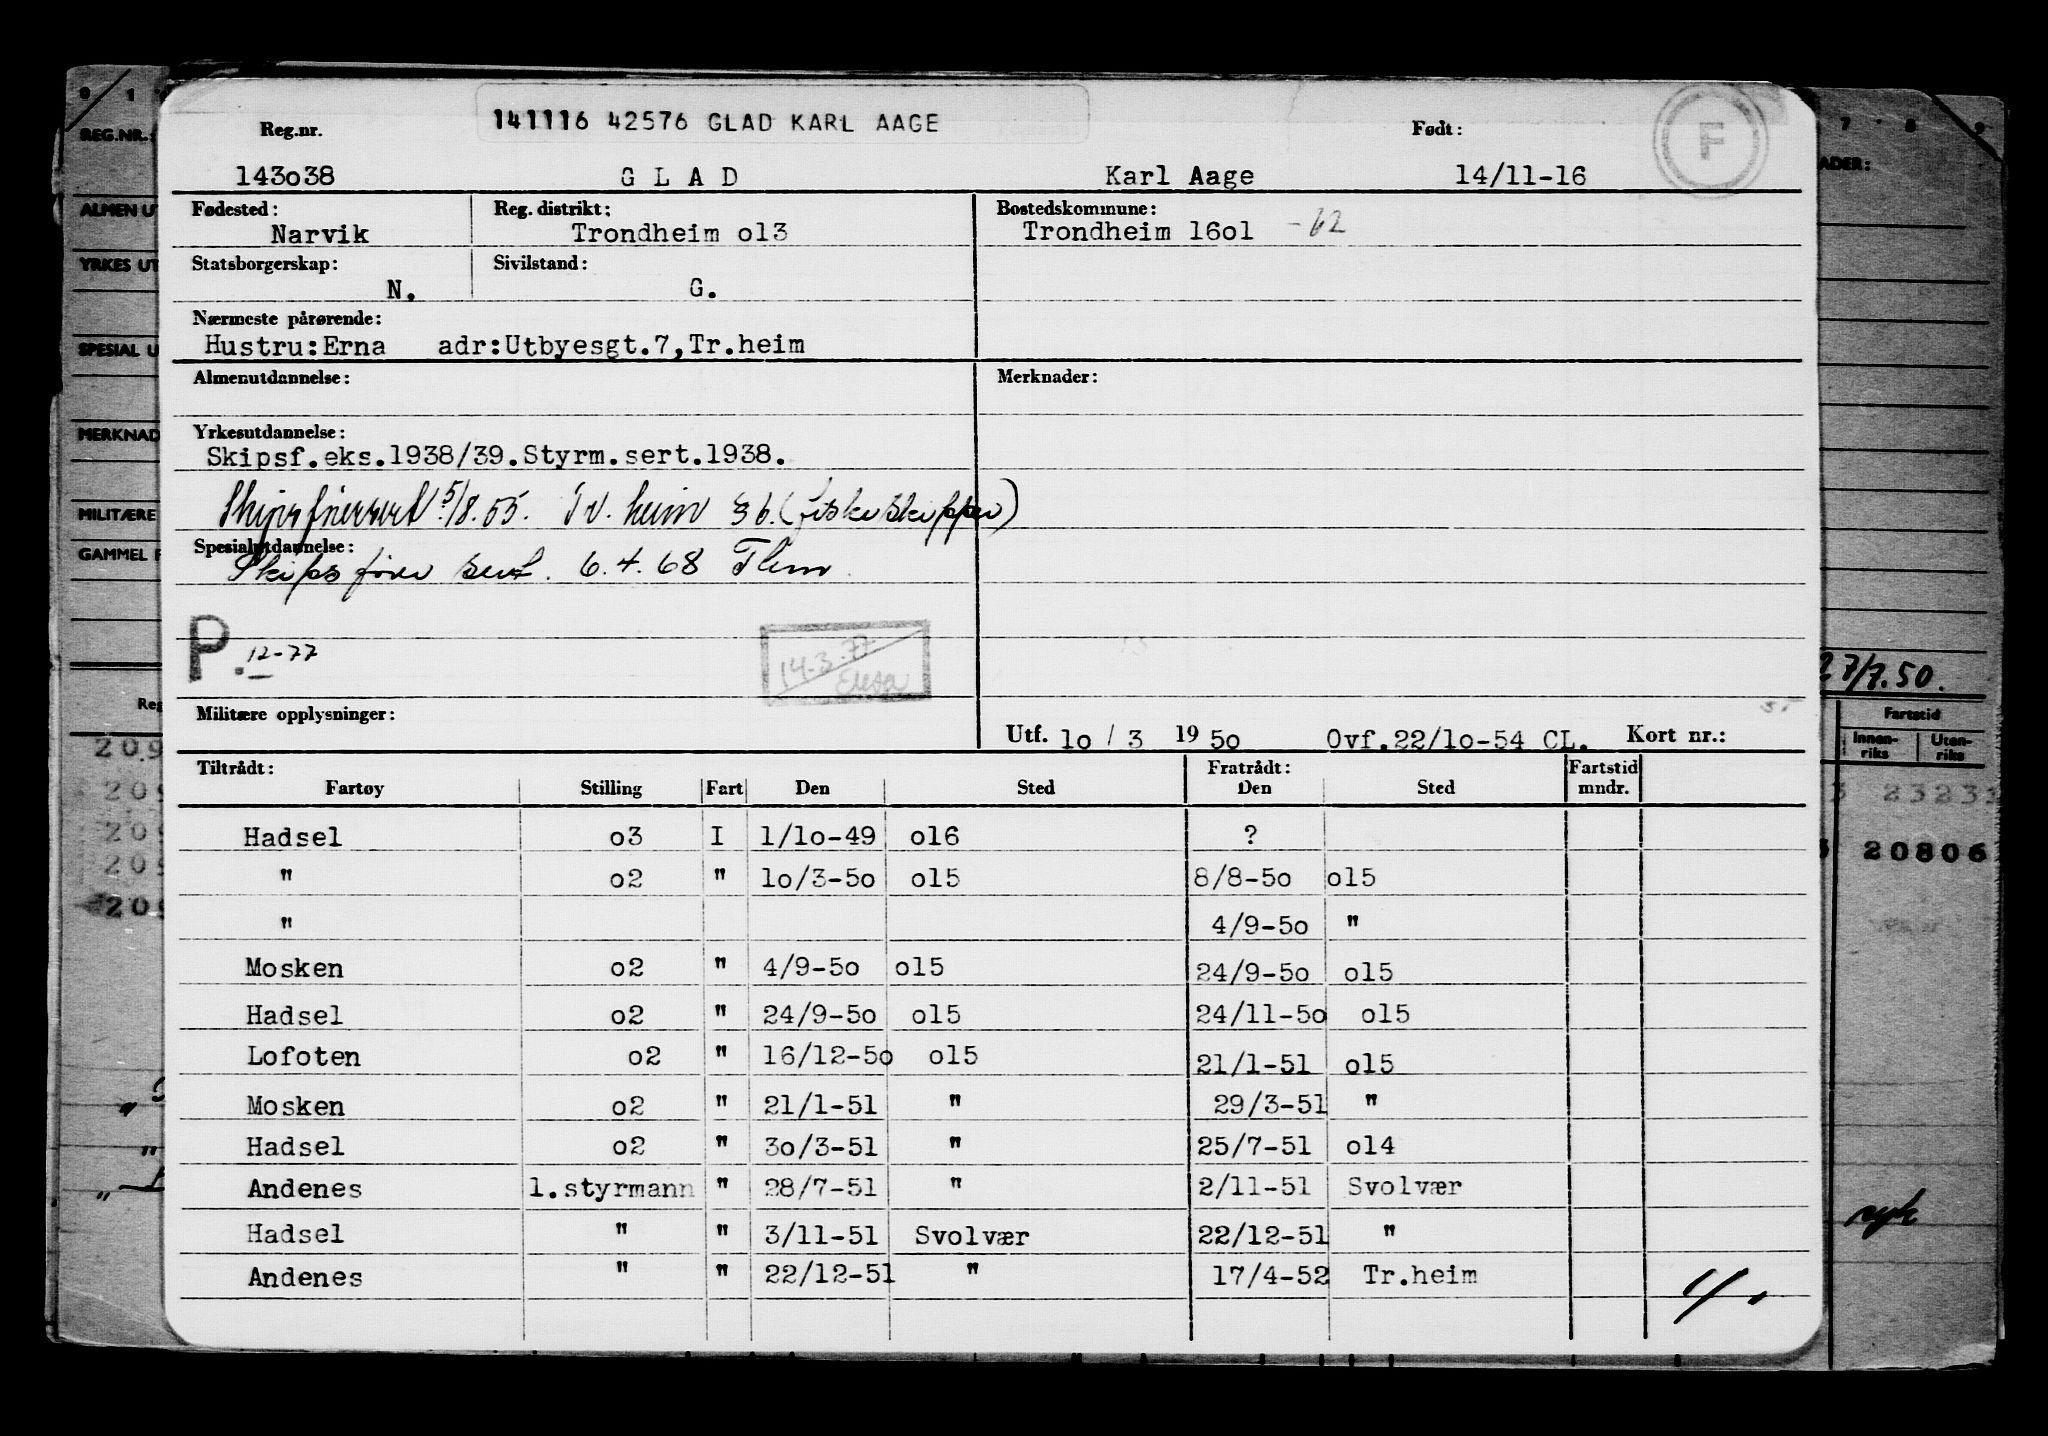 141116 42576 GLAD KARL AAGE
Reg.nr. Født: F
143o38 G L A D Karl Aage 14/11-16
Fødested: Reg. distrikt: Bostedskommune:
Narvik Trondheim o13 Trondheim 16o1 -62
Statsborgerskap: Sivilstand:
N. G.
Nærmeste pårørende:
Hustru:Erna adr:Utbyesgt.7,Tr.heim
Almenutdannelse: Merknader:
Yrkesutdannelse:
Skipsf.eks.1938/39.Styrm.sert.1938.
5/8.55. Tr.heim 36. (fiskeskipper)
Spesialutdannelse:
Skipsfører sert. 6.4.68 T.heim
P. 12-77
14-3-77
Militære opplysninger:
Utf. 1o / 3 19 5o Ovf.22/1o-54 CL. Kort nr.:
Tiltrådt: Fratrådt: Fartstid
Fartøy Stilling Fart Den Sted Den Sted mndr.
Hadsel o3 I 1/1o-49 o16 ?
" o2 " 1o/3-5o o15 8/8-5o o15
" 4/9-5o "
Mosken o2 " 4/9-5o o15 24/9-5o o15
Hadsel o2 " 24/9-5o o15 24/11-5o o15
Lofoten o2 " 16/12-5o o15 21/1-51 o15
Mosken o2 " 21/1-51 " 29/3-51 "
Hadsel o2 " 3o/3-51 " 25/7-51 o14
Andenes 1.styrmann " 28/7-51 " 2/11-51 Svolvær
Hadsel " " 3/11-51 Svolvær 22/12-51 "
Andenes " " 22/12-51 " 17/4-52 Tr.heim
0 1
REG.NR.:
ALMEN UT
YRKES UT
SPESIAL U
MERKNAD
MILITÆRE
GAMMEL F
Reg
209
209
209
209
209
7 8 9
ADER:
27/7.50.
Fartstid
Innen-riks Uten-riks
3 23232
20806